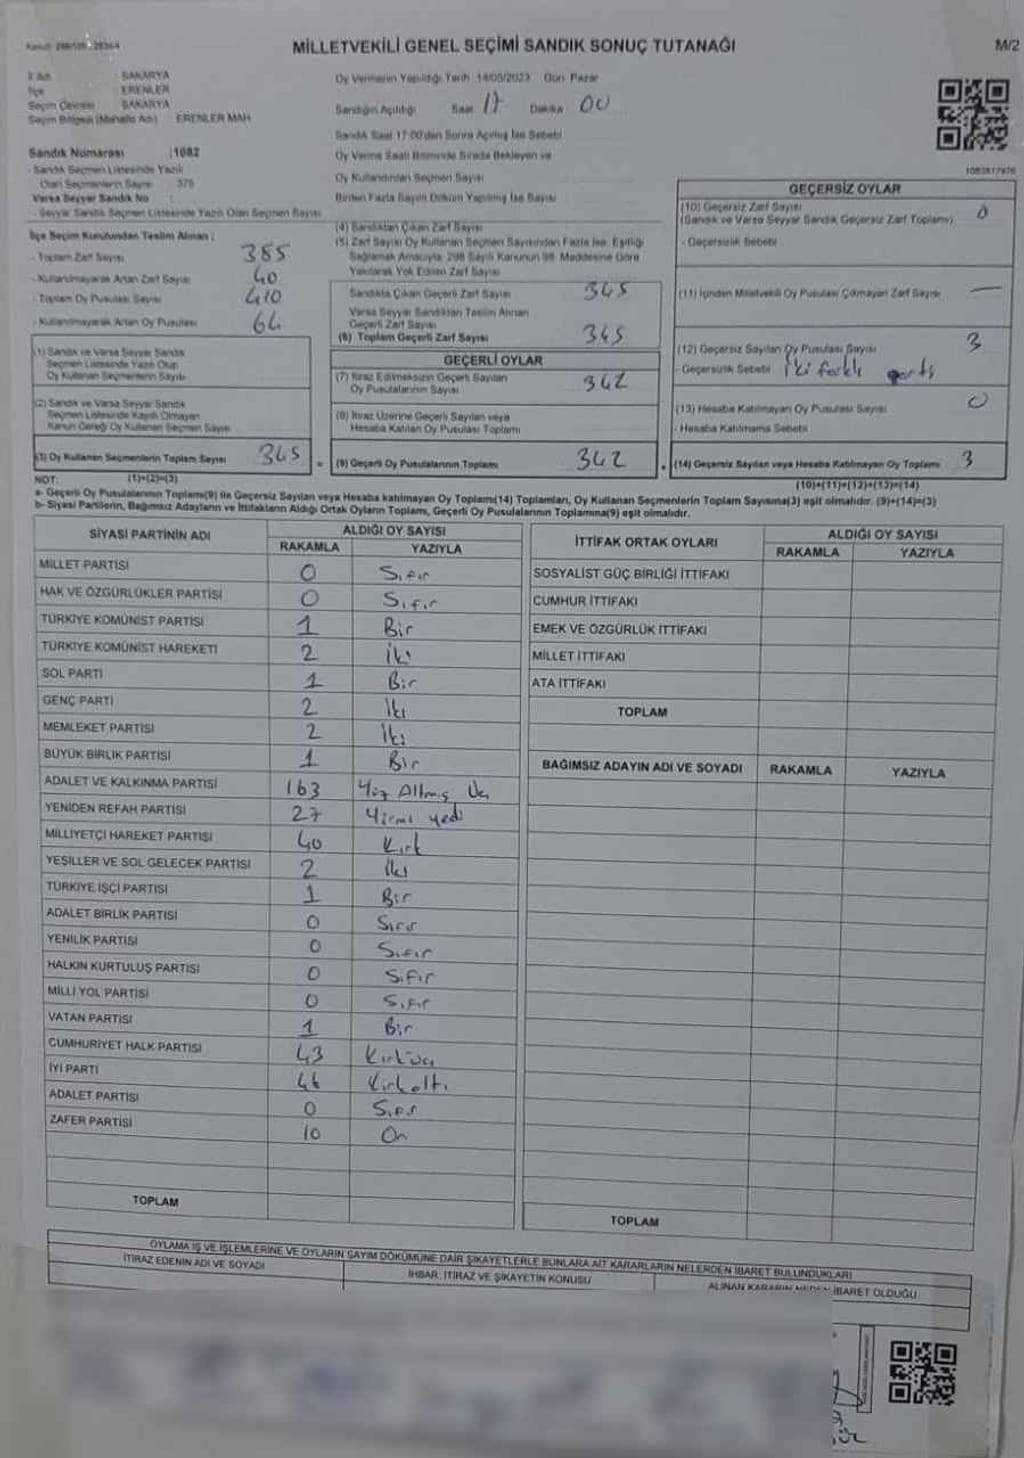 MİLLETVEKİLİ GENEL SEÇİMİ SANDIK SONUÇ TUTANAĞI
M/2
İl Adı SAKARYA
İlçe ERENLER
Seçim Çevresi SAKARYA
Seçim Bölgesi (Mahalle Adı) ERENLER MAH
Sandık Numarası :1082
- Sandık Seçmen Listesinde Yazılı
Olan Seçmenlerin Sayısı 375
Varsa Seyyar Sandık No :
- Seyyar Sandık Seçmen Listesinde Yazılı Olan Seçmen Sayısı
İlçe Seçim Kurulundan Teslim Alınan :
- Toplam Zarf Sayısı 385
- Kullanılmayarak Artan Zarf Sayısı 40
- Toplam Oy Pusulası Sayısı 410
- Kullanılmayarak Artan Oy Pusulası
(1) Sandık ve Varsa Seyyar Sandık
Seçmen Listesinde Yazılı Olup
Oy Kullanan Seçmenlerin Sayısı
(2) Sandık ve Varsa Seyyar Sandık
Seçmen Listesinde Kayıtlı Olmayan
Kanun Gereği Oy Kullanan Seçmen Sayısı
(3) Oy Kullanan Seçmenlerin Toplam Sayısı 345
(1)+(2)=(3)
Oy Vermenin Yapıldığı Tarih 14/05/2023 Gün Pazar
Sandığın Açıldığı Saat 17 Dakika 00
Sandık Saat 17:00'dan Sonra Açılmış İse Sebebi
Oy Verme Saati Bitiminde Sırada Bekleyen ve
Oy Kullandırılan Seçmen Sayısı
Birden Fazla Sayım Döküm Yapılmış İse Sayısı
(4) Sandıktan Çıkan Zarf Sayısı
(5) Zarf Sayısı Oy Kullanan Seçmen Sayısından Fazla İse, Eşitliği
Sağlamak Amacıyla, 298 Sayılı Kanunun 98. Maddesine Göre
Yakılarak Yok Edilen Zarf Sayısı
Sandıkta Çıkan Geçerli Zarf Sayısı 345
Varsa Seyyar Sandıktan Teslim Alınan
Geçerli Zarf Sayısı
(6) Toplam Geçerli Zarf Sayısı 345
GEÇERLİ OYLAR
(7) İtiraz Edilmeksizin Geçerli Sayılan
Oy Pusulalarının Sayısı 342
(8) İtiraz Üzerine Geçerli Sayılan veya
Hesaba Katılan Oy Pusulası Toplamı
= (9) Geçerli Oy Pusulalarının Toplamı 342
1083817976
GEÇERSİZ OYLAR
(10) Geçersiz Zarf Sayısı 0
(Sandık ve Varsa Seyyar Sandık Geçersiz Zarf Toplamı)
- Geçersizlik Sebebi
(11) İçinden Milletvekili Oy Pusulası Çıkmayan Zarf Sayısı —
(12) Geçersiz Sayılan Oy Pusulası Sayısı 3
- Geçersizlik Sebebi İki farklı parti
(13) Hesaba Katılmayan Oy Pusulası Sayısı 0
- Hesaba Katılmama Sebebi
(14) Geçersiz Sayılan veya Hesaba Katılmayan Oy Toplamı 3
(10)+(11)+(12)+(13)=(14)
NOT:
a- Geçerli Oy Pusulalarının Toplamı(9) ile Geçersiz Sayılan veya Hesaba katılmayan Oy Toplamı(14) Toplamları, Oy Kullanan Seçmenlerin Toplam Sayısına(3) eşit olmalıdır. (9)+(14)=(3)
b- Siyasi Partilerin, Bağımsız Adayların ve İttifakların Aldığı Ortak Oyların Toplamı, Geçerli Oy Pusulalarının Toplamına(9) eşit olmalıdır.
SİYASİ PARTİNİN ADI ALDIĞI OY SAYISI
RAKAMLA YAZIYLA
MİLLET PARTİSİ 0 Sıfır
HAK VE ÖZGÜRLÜKLER PARTİSİ 0 Sıfır
TÜRKİYE KOMÜNİST PARTİSİ 1 Bir
TÜRKİYE KOMÜNİST HAREKETİ 2 İki
SOL PARTİ 1 Bir
GENÇ PARTİ 2 İki
MEMLEKET PARTİSİ 2 İki
BÜYÜK BİRLİK PARTİSİ 1 Bir
ADALET VE KALKINMA PARTİSİ 163 Yüz Altmış Üç
YENİDEN REFAH PARTİSİ 27 Yirmi yedi
MİLLİYETÇİ HAREKET PARTİSİ 40 Kırk
YEŞİLLER VE SOL GELECEK PARTİSİ 2 İki
TÜRKİYE İŞÇİ PARTİSİ 1 Bir
ADALET BİRLİK PARTİSİ 0 Sıfır
YENİLİK PARTİSİ 0 Sıfır
HALKIN KURTULUŞ PARTİSİ 0 Sıfır
MİLLİ YOL PARTİSİ 0 Sıfır
VATAN PARTİSİ 1 Bir
CUMHURİYET HALK PARTİSİ 43 Kırküç
İYİ PARTİ 46 Kırkaltı
ADALET PARTİSİ 0 Sıfır
ZAFER PARTİSİ 10 On
TOPLAM
İTTİFAK ORTAK OYLARI ALDIĞI OY SAYISI
RAKAMLA YAZIYLA
SOSYALİST GÜÇ BİRLİĞİ İTTİFAKI
CUMHUR İTTİFAKI
EMEK VE ÖZGÜRLÜK İTTİFAKI
MİLLET İTTİFAKI
ATA İTTİFAKI
TOPLAM
BAĞIMSIZ ADAYIN ADI VE SOYADI RAKAMLA YAZIYLA
TOPLAM
OYLAMA İŞ VE İŞLEMLERİNE VE OYLARIN SAYIM DÖKÜMÜNE DAİR ŞİKAYETLERLE BUNLARA AİT KARARLARIN NELERDEN İBARET BULUNDUKLARI
İTİRAZ EDENİN ADI VE SOYADI
İHBAR, İTİRAZ VE ŞİKAYETİN KONUSU
ALINAN KARARIN NEDEN İBARET OLDUĞU